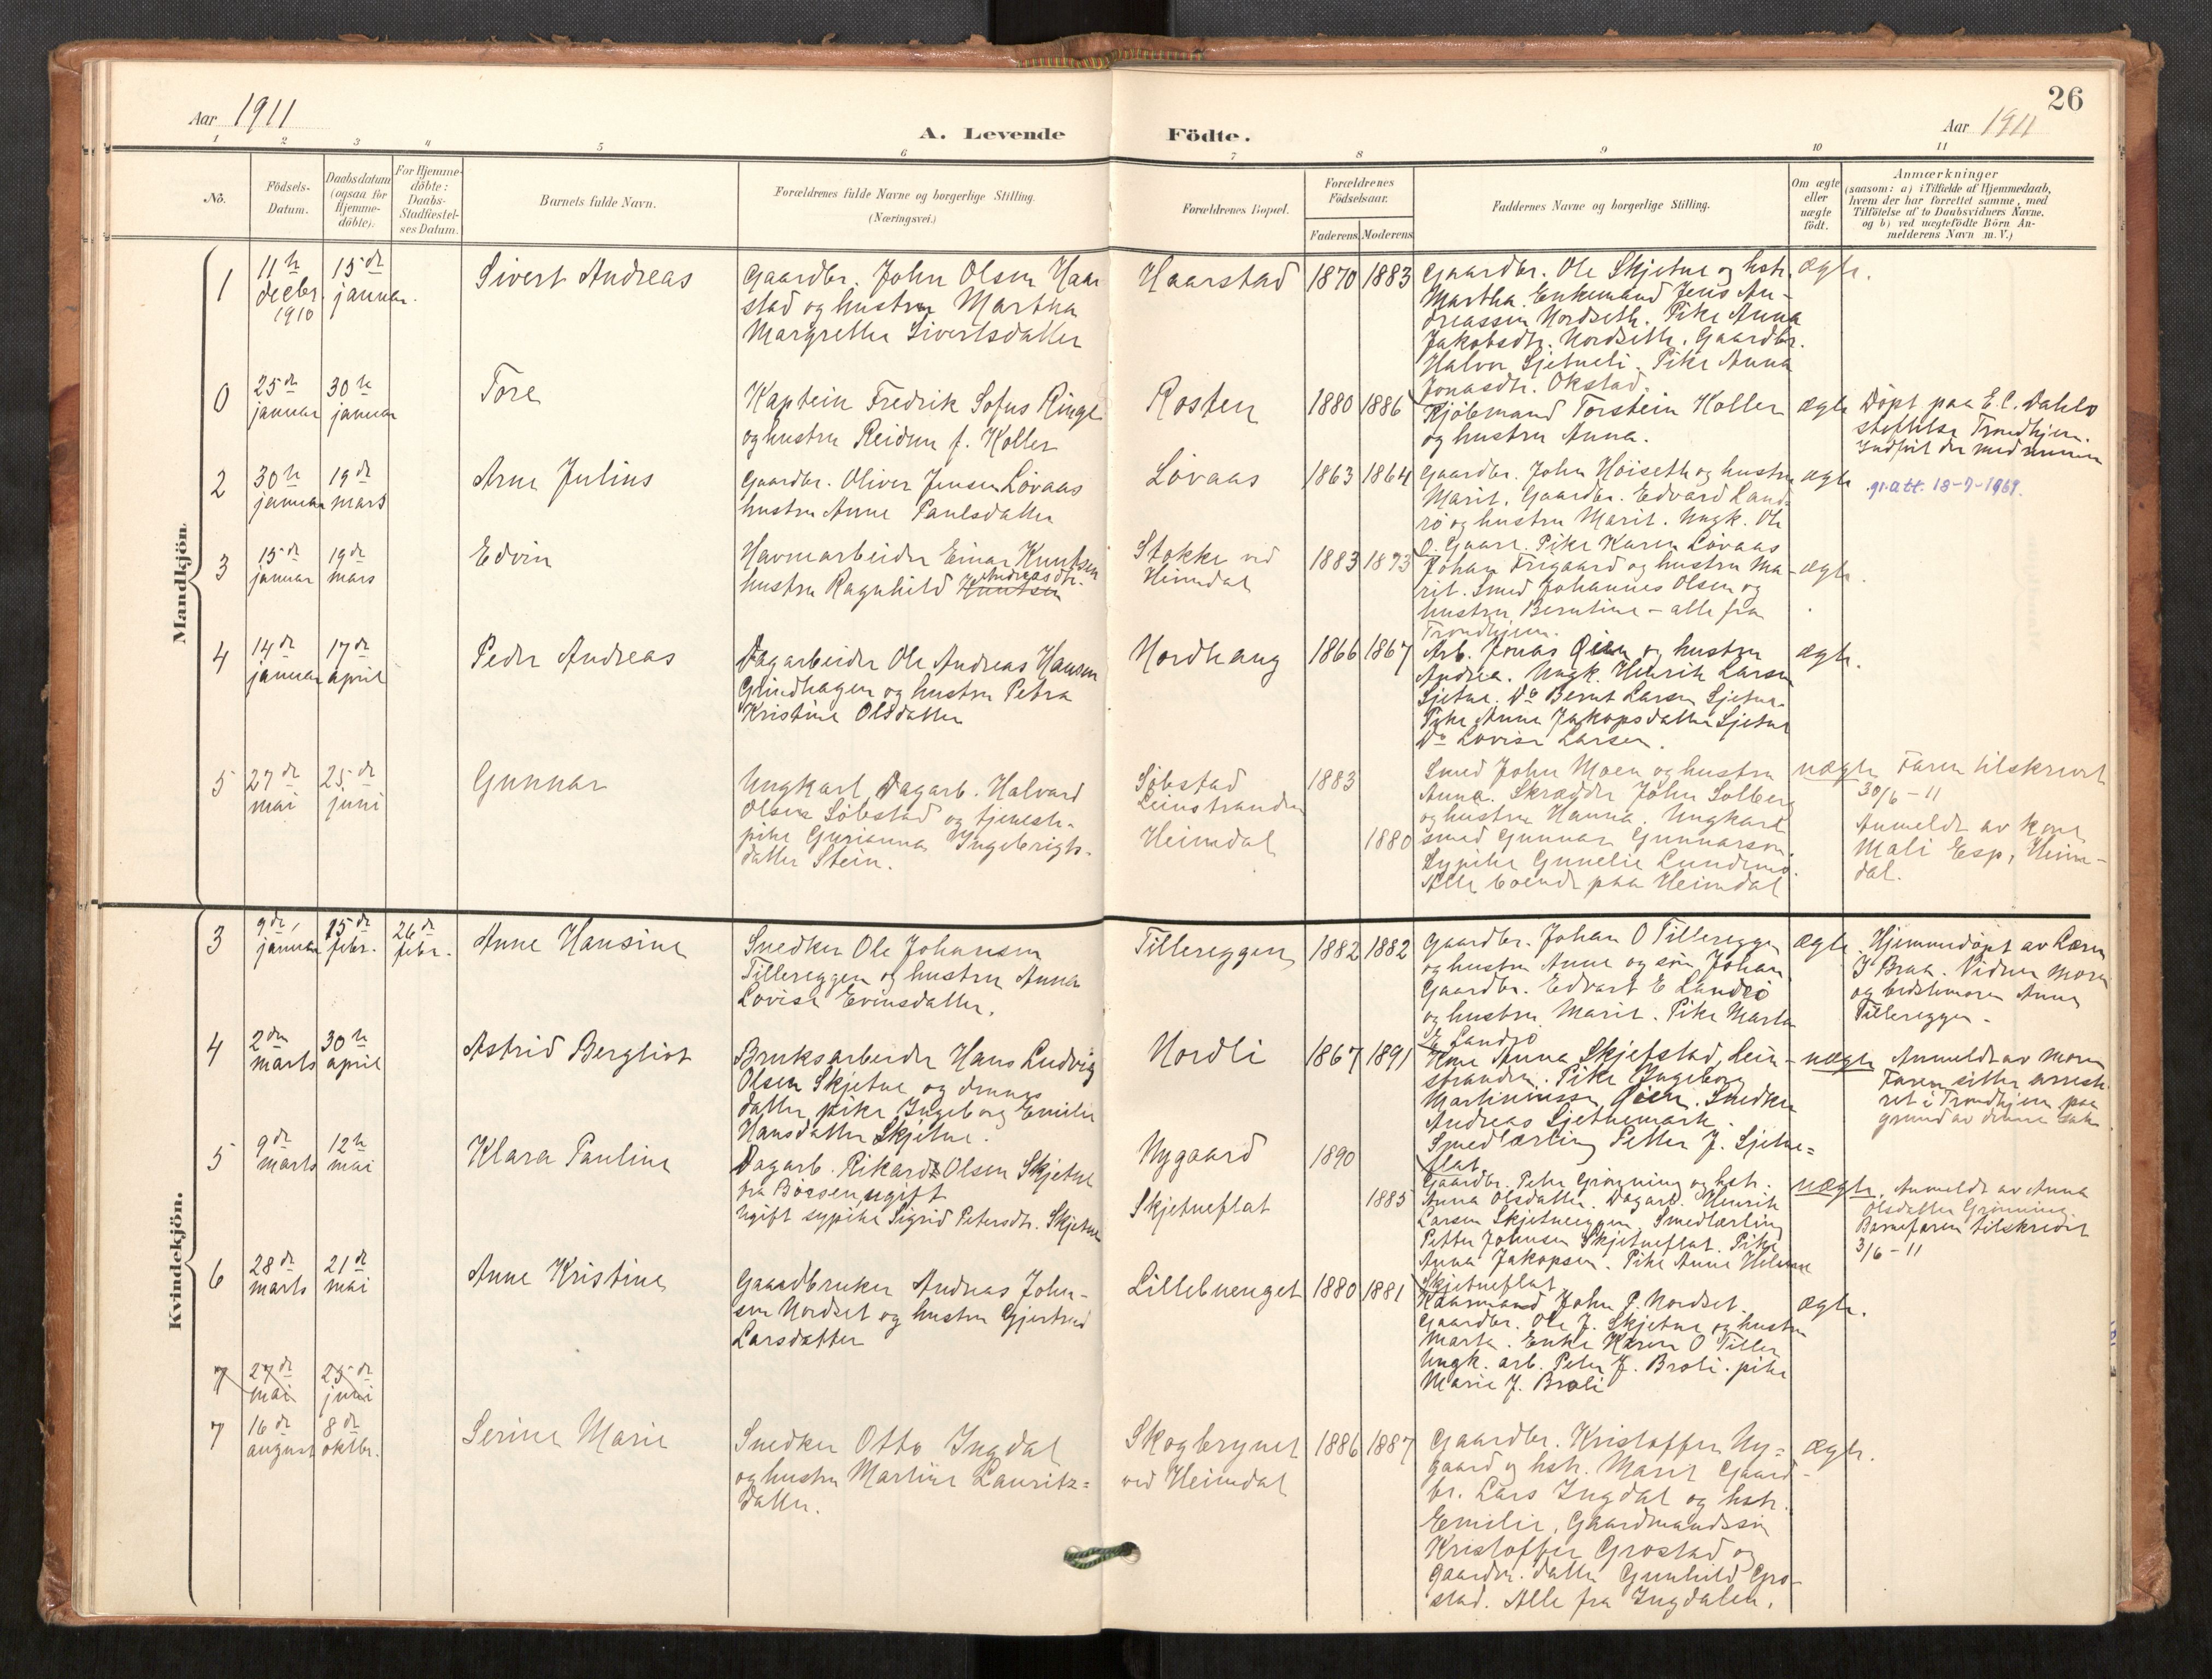 26
Aar 1911
A. Levende Födte.
Aar 1911
1 2 3 4 5 6 7 8 9 10 11
No.
Födsels-
Datum.
Daabsdatum
(ogsaa for
Hjemme-
döbte).
For Hjemme-
döbte:
Daabs-
Stadfæstel-
ses Datum.
Barnets fulde Navn.
Forældrenes fulde Navne og borgerlige Stilling.
(Næringsvei.)
Forældrenes Bopæl.
Forældrenes
Födselsaar.
Faderens Moderens
Faddernes Navne og borgerlige Stilling.
Om ægte
eller
uægte
födt.
Anmærkninger
(saasom: a) i Tilfælde af Hjemmedaab,
hvem der har forrettet samme, med
Tilföielse af to Daabsvidners Navne,
og b) ved uægtefödte Börn An-
melderens Navn m. V.)
Mandkjön.
1
11te
decbr.
1910
15de
januar.
Sivert Andreas
Gaardbr. John Olsen Haar
stad og hustru Martha
Margrethe Sivertsdatter
Haarstad
1870 1883
Gaardbr. Ole Skjetne og hstr.
Martha. Enkemand Jens An-
dreassen Nordseth. Pike Anna
Jakobsdtr. Nordseth. Gaardbr.
Halvor Sjetneli. Pike Anna
Jonasdtr. Okstad.
ægte.
0
25de
januar
30te
januar
Tore
Kaptein Fredrik Sofus Ringe
og hustru Reidun f. Koller
Rosten
1880 1886
Kjöbmand Torstein Koller
og hustru Anna.
ægte
Döpt paa E. C. Dahls
stiftelse Trondhjem.
Indfört der med nummer
2
30te
januar
19de
mars
Arne Julius
Gaardbr. Oliver Jensen Lövaas
hustru Anne Paulsdatter
Lövaas
1863 1864
Gaardbr. John Höiseth og hustru
Marit. Gaardbr. Edvard Land-
rö og hustru Marit. Ungk. Ole
O. Gaare. Pike Karen Lövaas
ægte
gr.att. 18-7-1969.
3
15de
januar
19de
mars
Edvin
Havnearbeider Einar Knutsen
Andreasdtr.
hustru Ragnhild Knutsen
Stokke ved
Heimdal
1883 1873
Johan Frigaard og hustru Ma-
rit. Smed Johannes Olsen og
hustru Berntine – alle fra
Trondhjem.
ægte.
4
14de
januar
17de
april
Peder Andreas
Dagarbeider Ole Andreas Hansen
Grindhagen og hustru Petra
Kristine Olsdatter
Nordhaug
1866 1867
Arb. Jonas Öien og hustru
Andrea. Ungk. Henrik Larsen
Sjetne. Do Bernt Larsen Sjetne.
Pike Anne Jakopsdatter Sjetne
Do Lovise Larsen.
ægte.
5
27de
mai
25de
juni
Gunnar
Ungkarl, Dagarb. Halvard
Olsen Söbstad og tjeneste-
pike Gurianna Ingebrigts-
datter Stein.
Söbstad
Leinstranden
Heimdal
1883
1880
Smed John Moen og hustru
Anna. Skrædder John Solberg
og hustru Hanna. Ungkarl
smed Gunnar Gunnarson.
Sypike Gunelie Lundemo.
Alle boende paa Heimdal
uægte
Faren tilskrevet
30/6 – 11
Anmeldt av kone
Mali Esp, Heim-
dal.
Kvindekjön.
3
9de
januar
15de
febr.
26de
febr.
Anne Hansine
Snedker Ole Johansen
Tillereggen og hustru Anna
Lovise Evensdatter.
Tillereggen
1882 1882
Gaardbr. Johan O Tillereggen
og hustru Anne og sön Johan
Gaardbr. Edvart E Landrö
og hustru Marit. Pike Marta
E Landrö
ægte
Hjemmedöpt av Lærer
J Braa. Vidner moren
og bedstemoren Anne
Tillereggen –
4
2den
marts
30te
april
Astrid Bergliot
Bruksarbeider Hans Ludvig
Olsen Skjetne og dennes
datter pike Ingeborg Emilie
Hansdatter Skjetne.
Nordli
1867 1891
Kone Anna Skjefstad, Lein-
stranden. Pike Ingeborg
Martinussen Öien. Snedker
Andreas Sjetnemark.
Smedlærling Petter J. Sjetne=
flat
uægte
Anmeldt av moren
Faren sitter arreste-
ret i Trondhjem paa
grund av denne sak
5
9de
marts
12te
mai
Klara Pauline
Dagarb. Rikard Olsen Skjetne
fra Börsen, ugift
Ugift sypike Sigrid Petersdtr. Skjetne
Nygaard
Skjetneflat
1890
1885
Gaardbr. Peter Grönning og hstr.
Anna Olsdatter. Dagarb. Henrik
Larsen Skjetneeggen. Smedlærling
Petter Johnsen Skjetneflat. Pike
Anna Jakopsen. Pike Anne Helene
Skjetneflat
uægte.
Anmeldt av Anna
Olsdatter Grönning.
Barnefaren tilskrevet
3/6 – 11
6
28de
marts
21de
mai
Anne Kristine
Gaardbruker Andreas John-
sen Nordset og hustru Gjertrud
Larsdatter
Lillebuenget
1880 1881
Kaarmand John P. Nordset.
Gaardbr. Ole J. Skjetne og hustru
Marta. Enke Karen O Tiller
Ungk. arb. Peter J. Broli. pike
Marie J. Broli
ægte.
7
27de
mai
25de
juni
7
16de
august
8de
oktbr.
Serine Marie
Snedker Otto Ingdal
og hustru Martine Lauritz=
datter.
Skogbrynet
ved Heimdal
1886 1887
Gaardbr. Kristoffer Ny=
gaard og hstr. Marit Gaard-
br. Lars Ingdal og hstr.
Emilie, Gaardmandssön
Kristoffer Grostad og
Gaardm. datter Gunhild Gro-
stad. Alle fra Ingdalen.
ægte.